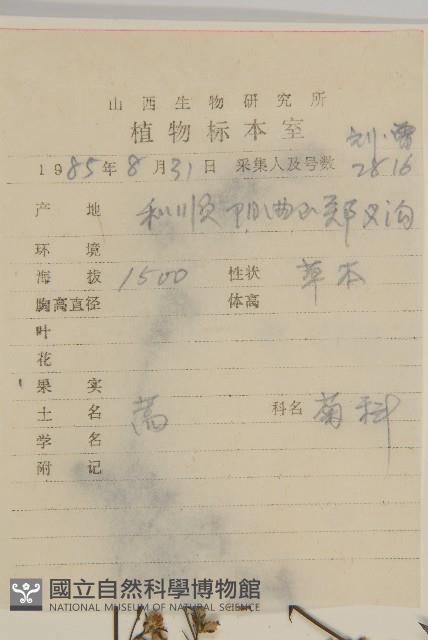 山西生物研究所
植物标本室
1985年8月31日 采集人及号数 刘小 2816
产地 和顺
环境
海拔 1500 性状 草本
胸高直径 体高
叶
花
果实
土名 蒿 科名 菊科
学名
附记
國立自然科學博物館
NATIONAL MUSEUM OF NATURAL SCIENCE